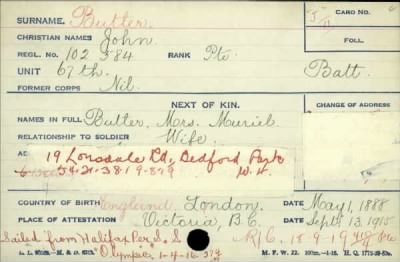 SURNAME Butler CARD NO.
CHRISTIAN NAMES John. FOLL.
REGL. NO. 102584 RANK Pte
UNIT 67th. Batt.
FORMER CORPS Nil.
NEXT OF KIN. CHANGE OF ADDRESS
NAMES IN FULL Butler, Mrs. Muriel
RELATIONSHIP TO SOLDIER Wife
19 Lonsdale Rd, Bedford Park
COUNTRY OF BIRTH England London. DATE May 1, 1888
PLACE OF ATTESTATION Victoria, B.C. DATE Sept. 13, 1915
Sailed from Halifax Per S. S. R/C. 18-9-19
Olympic 1-4-16
M. F. W. 22.